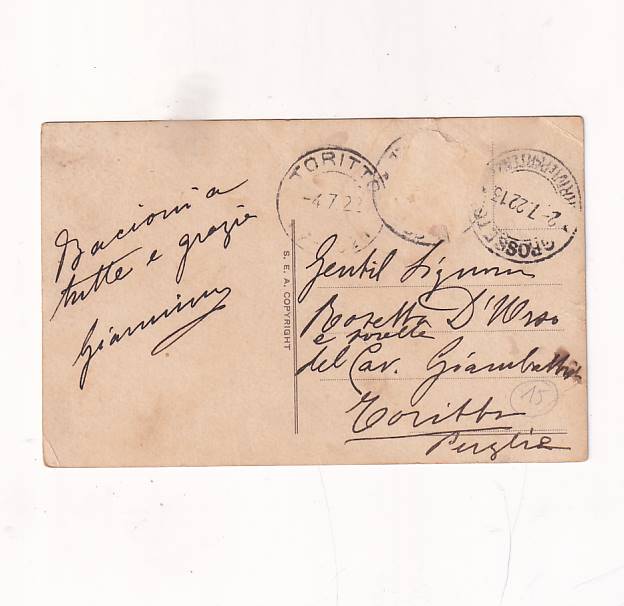 Bacioni a
tutte e grazie
Giannina
S. E. A. COPYRIGHT
TORITTO
-4.7.22
GROSSETO
ARRIVI E PARTENZE
2-7.22 13
Gentil Signora
Rosetta D'Urso
e sorelle
del Cav. Giambattista
Toritto
Puglie
15